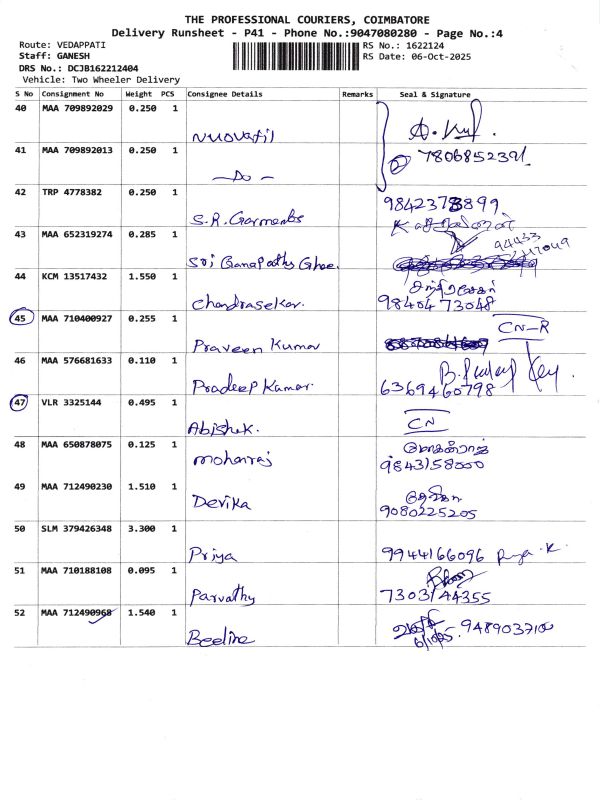 THE PROFESSIONAL COURIERS, COIMBATORE
Delivery Runsheet - P41 - Phone No.:9047080280 - Page No.:4
Route: VEDAPPATI
RS No.: 1622124
Staff: GANESH
RS Date: 06-Oct-2025
DRS No.: DCJB162212404
Vehicle: Two Wheeler Delivery
S No Consignment No Weight PCS Consignee Details Remarks Seal & Signature
40 MAA 709892029 0.250 1
Nuovatil
41 MAA 709892013 0.250 1
7806852391
— Do —
42 TRP 4778382 0.250 1
S.R. Garments
43 MAA 652319274 0.285 1
Sri Ganapathy Ghee.
44 KCM 13517432 1.550 1
Chandrasekar.
9840473048
45 MAA 710400927 0.255 1
CN-R
Praveen Kumar
46 MAA 576681633 0.110 1
Pradeep Kumar.
6369460798
47 VLR 3325144 0.495 1
Abishek.
CN
48 MAA 650878075 0.125 1
Mohanraj
9843158000
49 MAA 712490230 1.510 1
Devika
தேவிகா
9080225205
50 SLM 379426348 3.300 1
Priya
9944166096 Priya.K
51 MAA 710188108 0.095 1
Parvathy
7303144355
52 MAA 712490968 1.540 1
Beeline